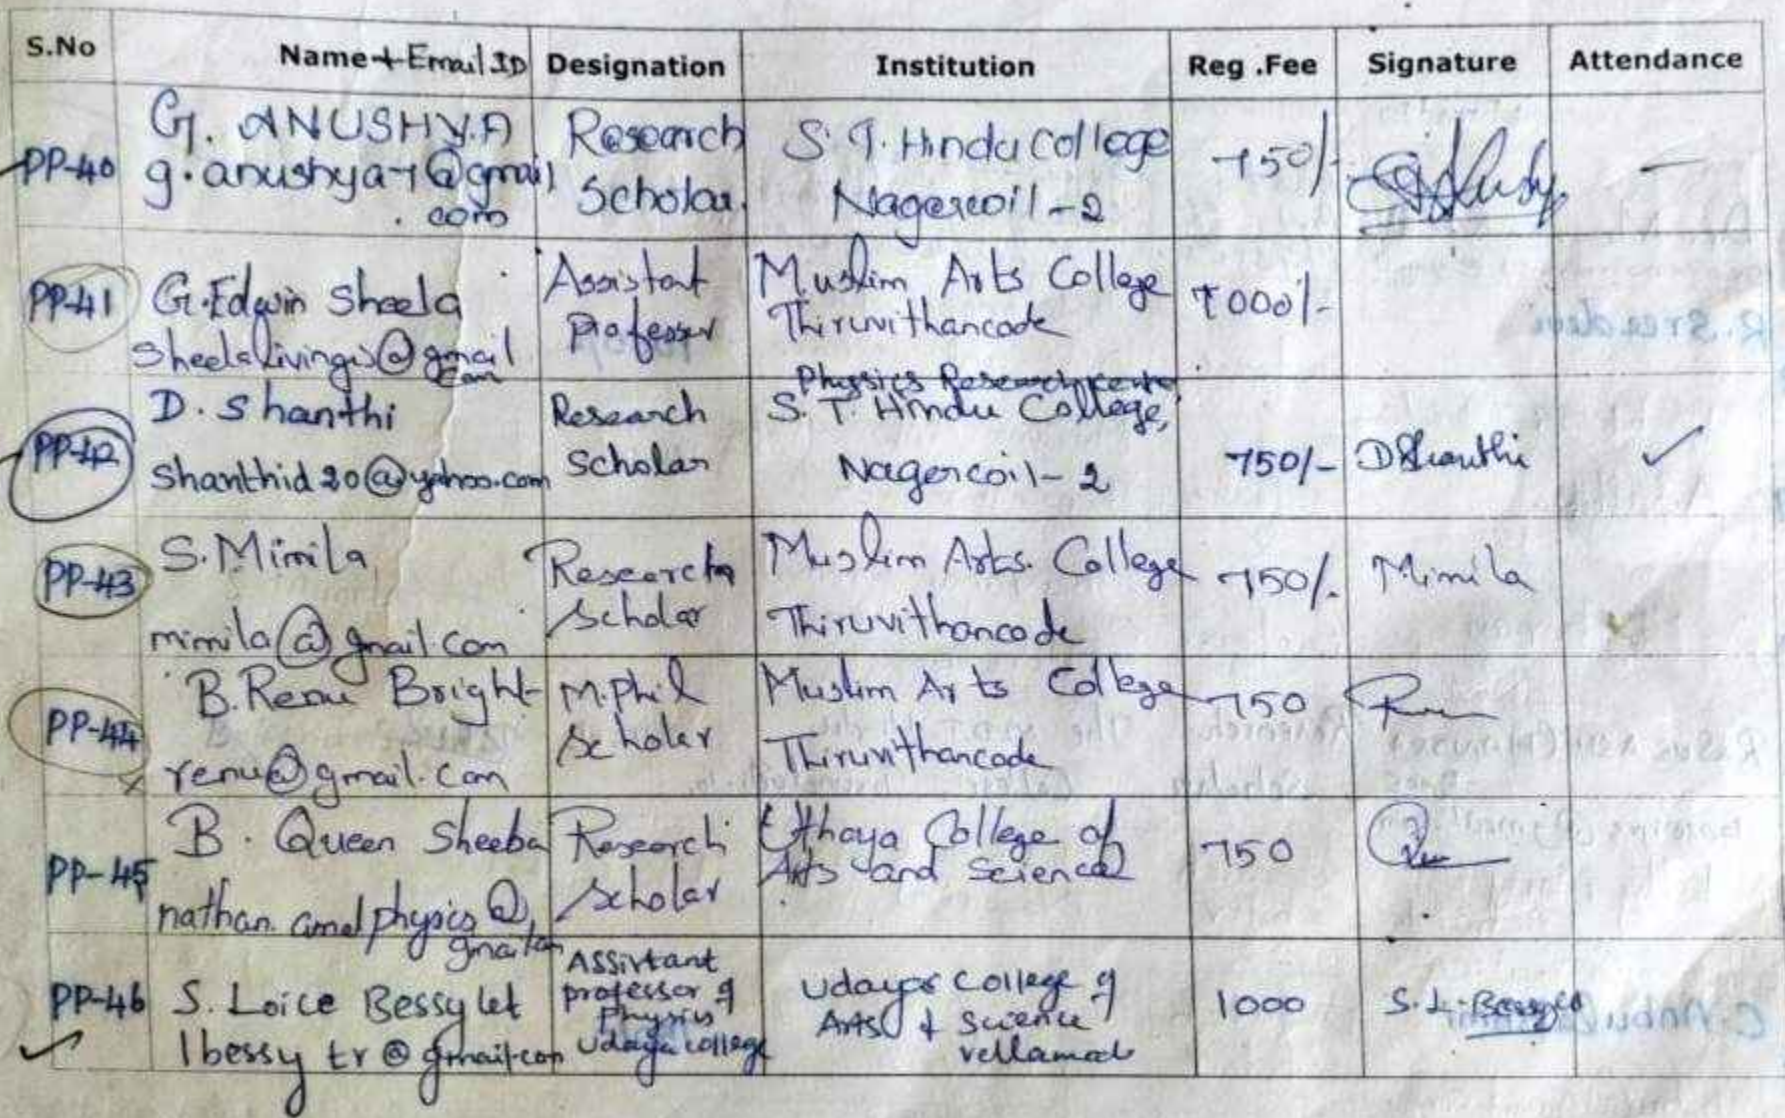 S.No Name + Email ID Designation Institution Reg .Fee Signature Attendance
PP-40
G. ANUSHYA
g.anushya-1@gmail
.com
Research
Scholar.
S.T. Hindu College
Nagercoil-2
750/-
-
PP-41
G.Edwin Sheela
@gmail
com
Assistant
Professor
Muslim Arts College
Thiruvithancode
1000/-
PP-42
D. Shanthi
shanthid20@yahoo.com
Research
Scholar
Physics Research centre
S. T. Hindu College,
Nagercoil-2
750/-
DShanthi
✓
PP-43
S.Mimila
mimila@gmail.com
Research
Scholar
Muslim Arts. College
Thiruvithancode
750/-
Mimila
PP-44
B.Renu Bright
renu@gmail.com
M.Phil
Scholar
Muslim Arts College
Thiruvithancode
750
PP-45
B. Queen Sheeba
nathan.amalphysics@
Research
Scholar
Uthaya College of
Arts and Science
750
PP-46
S. Loice Bessy let
lbessy tr@gmail.com
Assistant
professor of
Physics
Udaya college
Udaya College of
Arts & Science
vellamodi
1000
S.L.